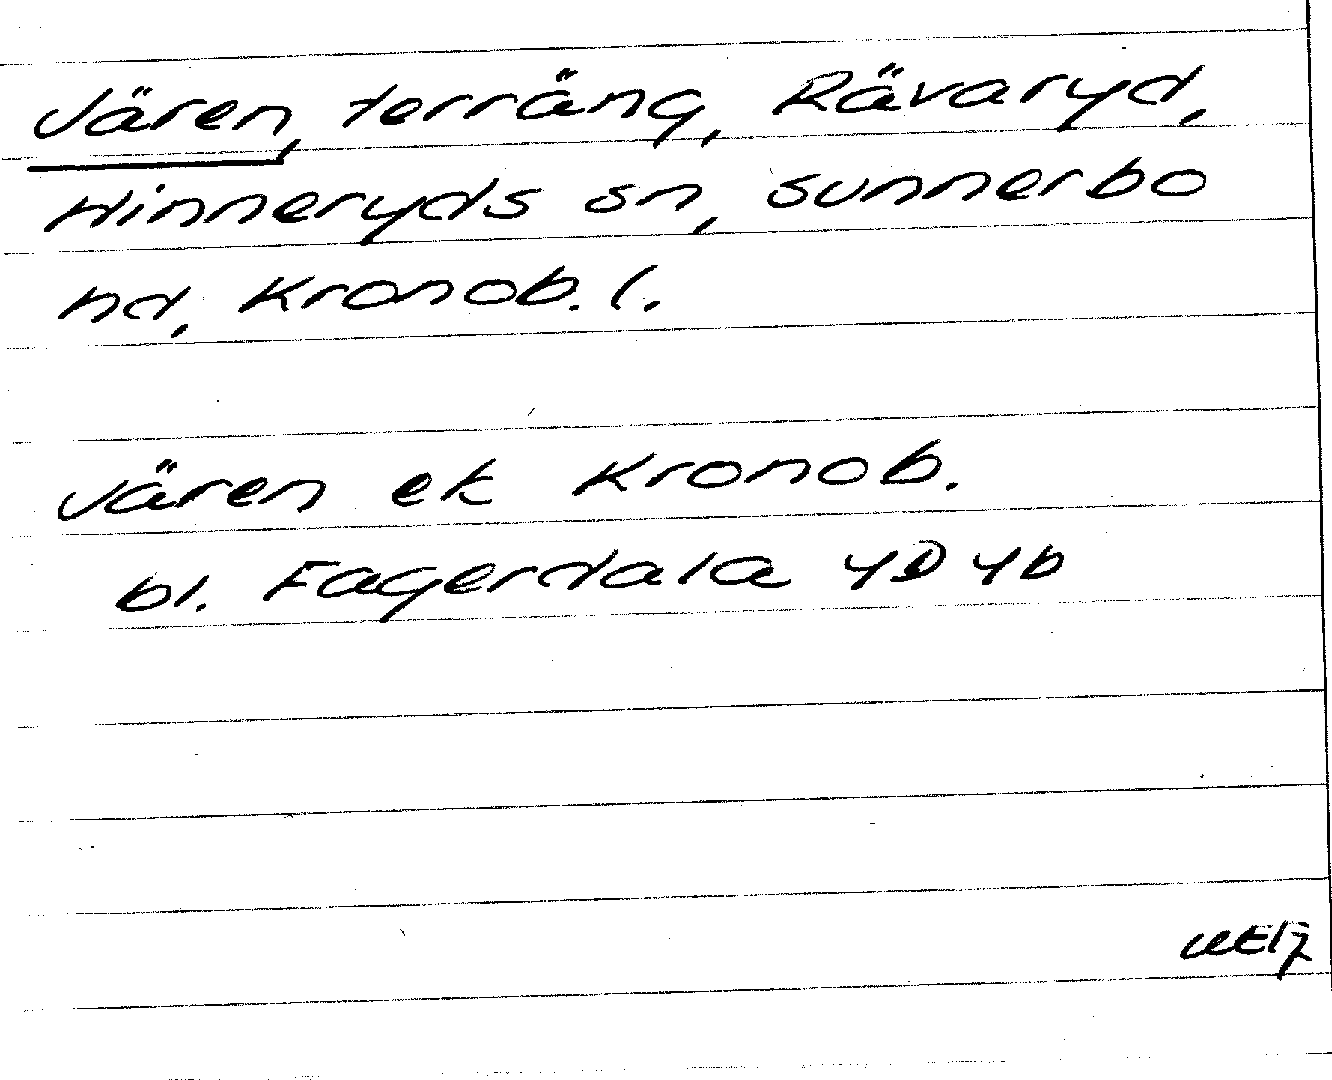 Jären, terräng, Rävaryd,
Hinneryds sn, Sunnerbo
hd, Kronob. l.
Jären ek Kronob.
bl. Fagerdala 4D 4b